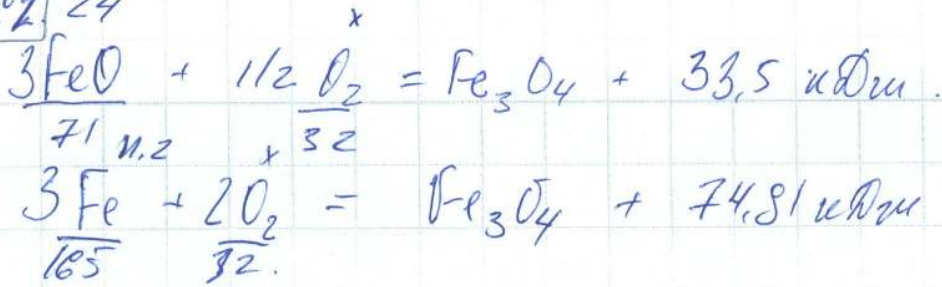 2 24
x
3FeO + 1/2 O₂ = Fe₃O₄ + 33,5 кДж.
71 32
11,2 x
3Fe + 2O₂ = Fe₃O₄ + 74,81 кДж
165 32.